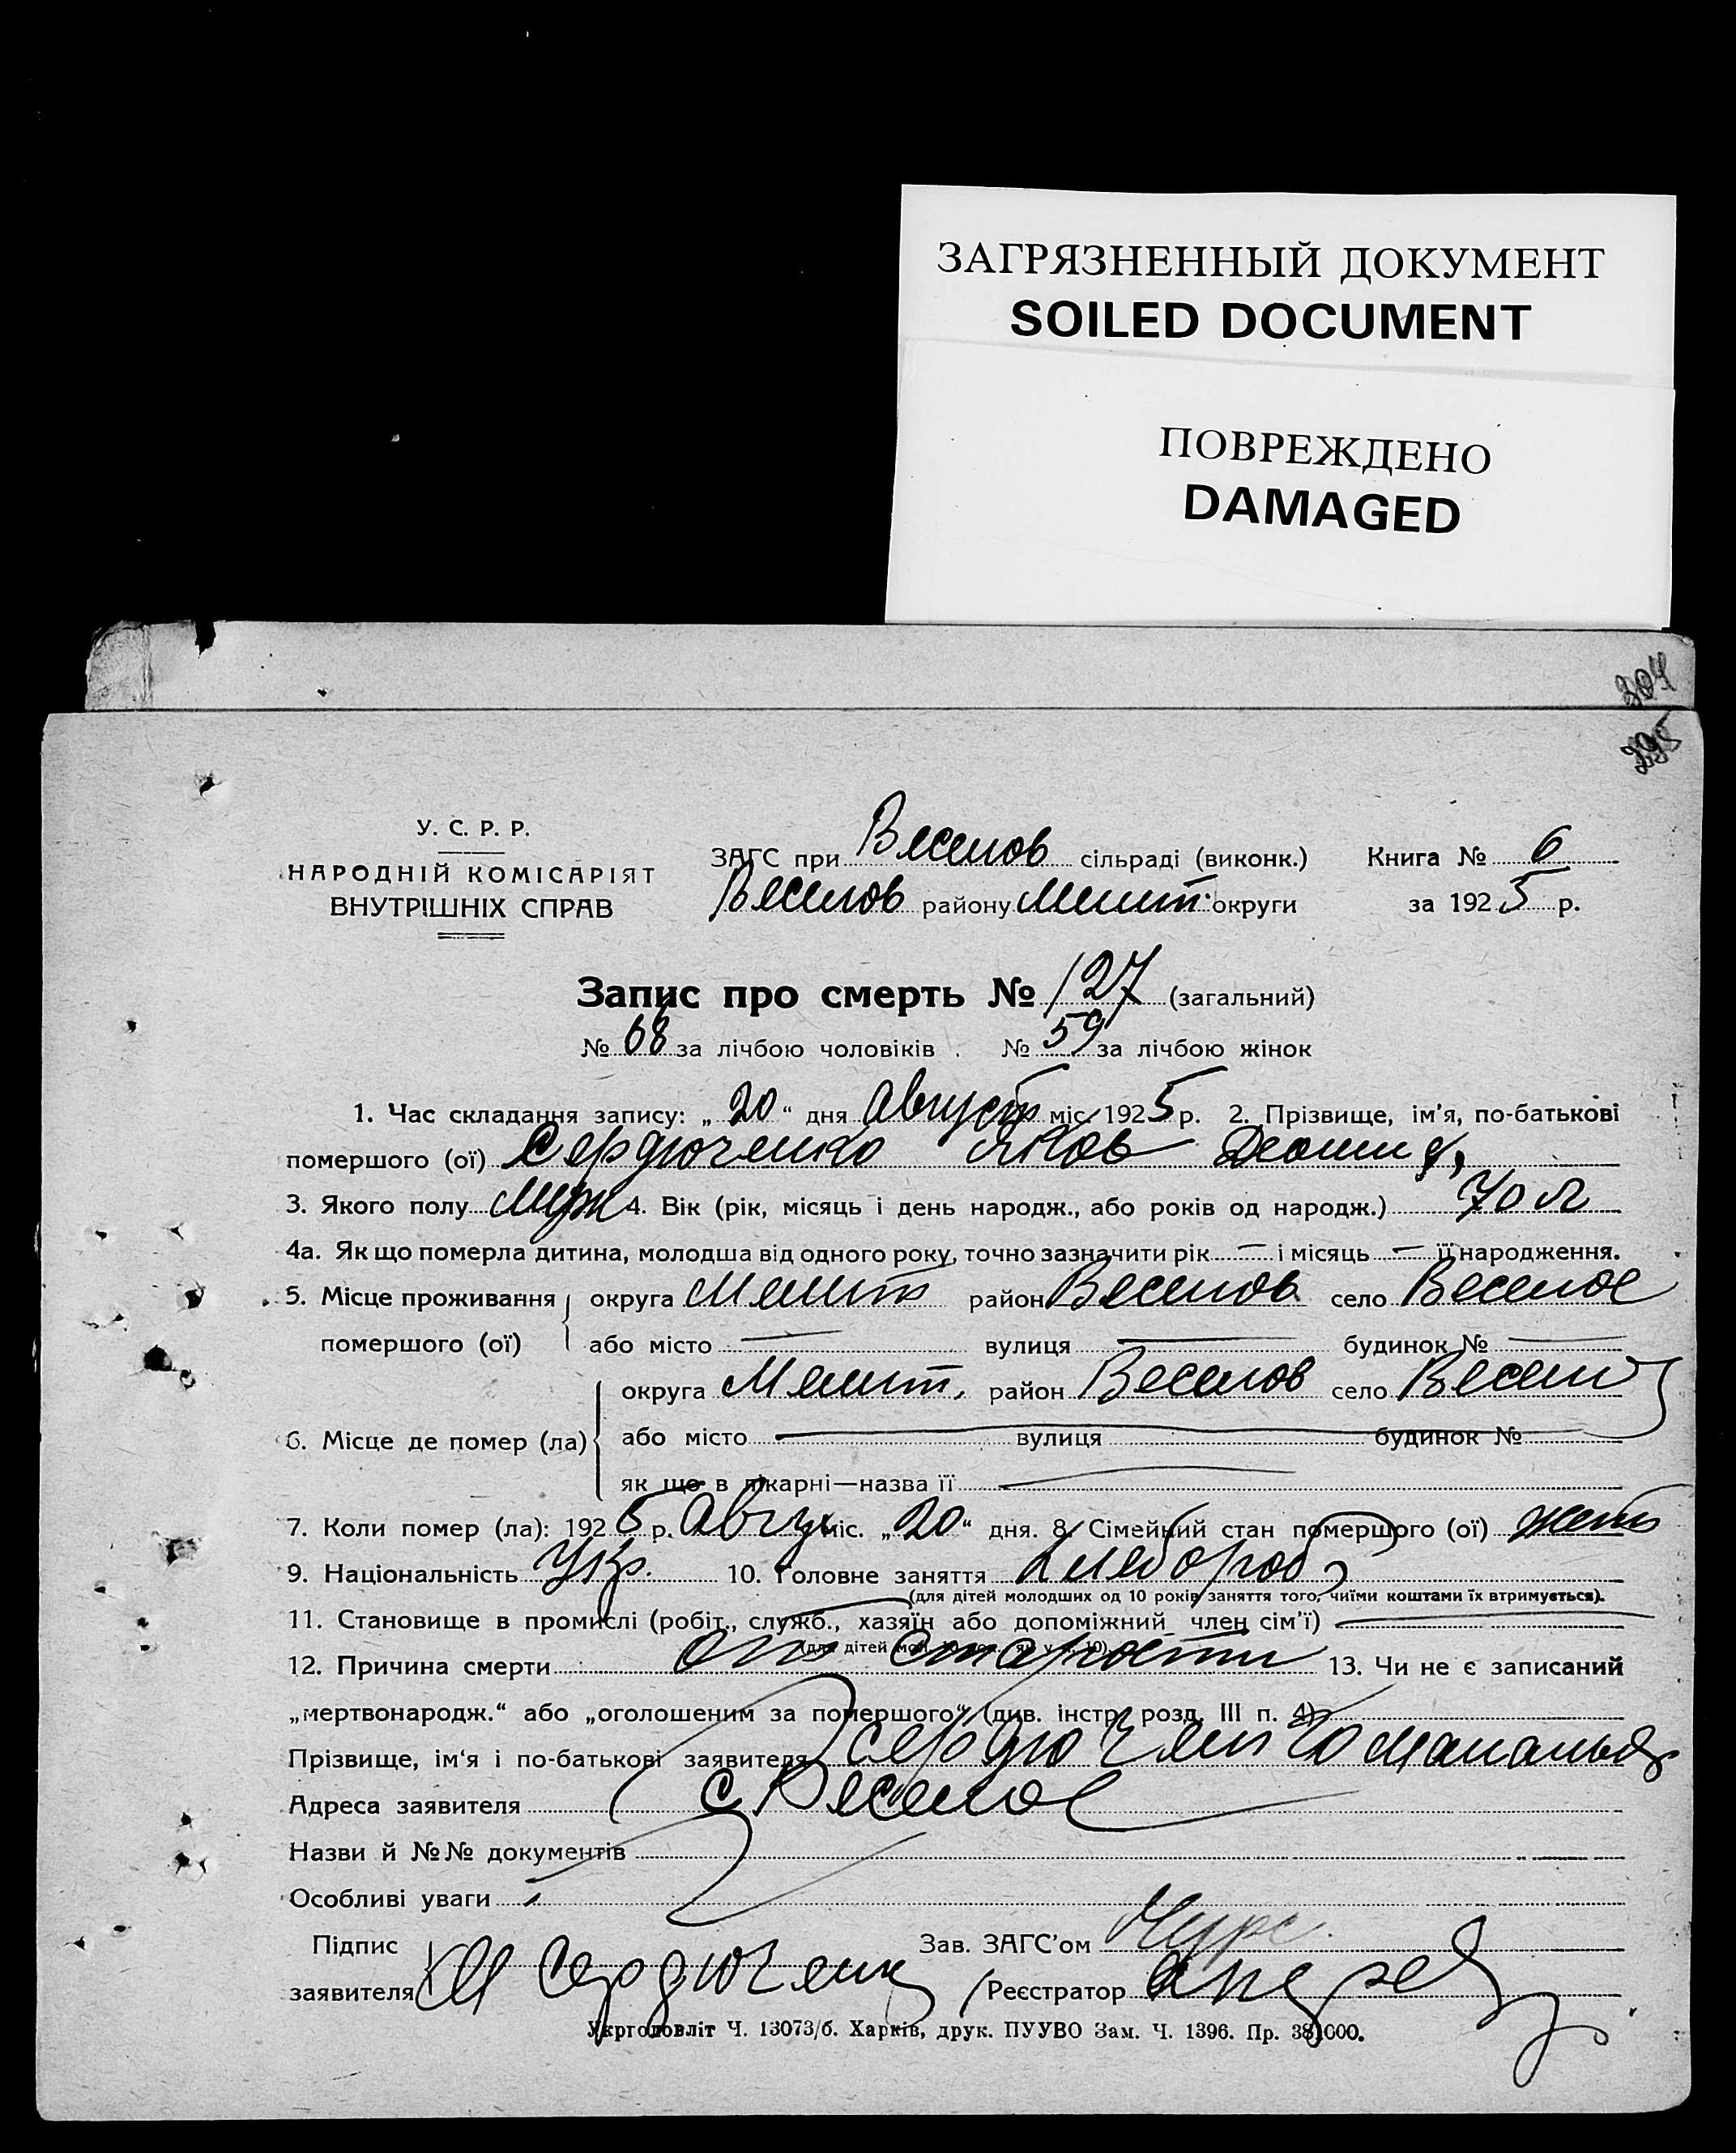 ЗАГРЯЗНЕННЫЙ ДОКУМЕНТ
SOILED DOCUMENT
ПОВРЕЖДЕНО
DAMAGED
304
У. С. Р. Р.
НАРОДНІЙ КОМІСАРІЯТ
ВНУТРІШНІХ СПРАВ
ЗАГС при Веселов сільраді (виконк.) Книга № 6
Веселов району Мелит. округи за 1925 р.
Запис про смерть № 127 (загальний)
№ 68 за лічбою чоловіків. № 59 за лічбою жінок
1. Час складання запису: „20“ дня Август міс. 1925 р. 2. Прізвище, ім'я, по-батькові
помершого (ої) Сердюченко Яков
3. Якого полу Муж 4. Вік (рік, місяць і день народж., або років од народж.) 70 л
4а. Як що померла дитина, молодша від одного року, точно зазначити рік — і місяць — її народження.
5. Місце проживання округа Мелит район Веселов. село Веселое
помершого (ої) або місто — вулиця — будинок № —
округа Мелит. район Веселов село Весел
6. Місце де помер (ла) або місто вулиця будинок №
як що в лікарні—назва її
7. Коли помер (ла): 1925 р. Август міс. „20“ дня. 8. Сімейний стан помершого (ої) женат
9. Національність Укр. 10. Головне заняття хлебороб
(для дітей молодших од 10 років заняття того, чиїми коштами їх втримується).
11. Становище в промислі (робіт., служб., хазяїн або допоміжний член сім'ї) —
12. Причина смерти от старости 13. Чи не є записаний
„мертвонародж.“ або „оголошеним за помершого“ (див. інстр. розд. III п. 4)
Прізвище, ім'я і по-батькові заявителя Сердюченко
Адреса заявителя с Веселое
Назви й №№ документів
Особливі уваги
Підпис Зав. ЗАГС'ом
заявителя М Сердюченк Реєстратор
Укрголовліт Ч. 13073/б. Харків, друк. ПУУВО Зам. Ч. 1396. Пр. 381000.